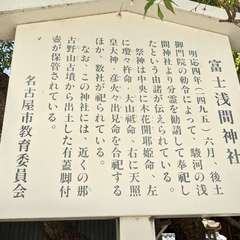 富士浅間神社
明応四年(一四九五)六月、後土
御門院の勅命によって、駿河の浅
間神社より分霊を勧請して奉祀し
たという由緒が伝えられている。
祭神は中央に木花開耶姫命、左
に瓊々杵命・大山祗命、右に天照
皇大神・彦火々出見命を合祀する
ほか、数社が祀られている。
なお、この神社には、近くの那
古野山古墳から出土した有蓋脚付
壺が保管されている。
名古屋市教育委員会